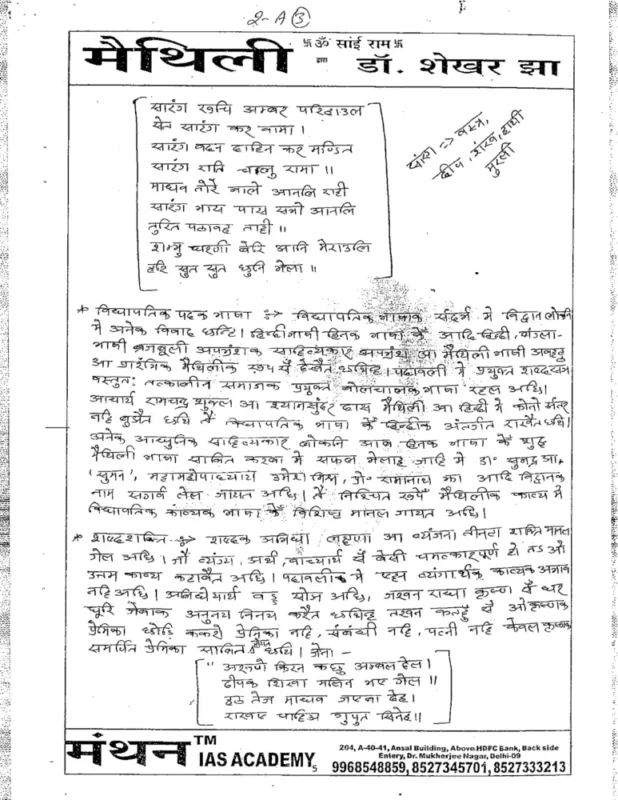 2-A (3)
卐 ॐ सांई राम 卐
मैथिली द्वारा डॉ. शेखर झा
सारंग
सारंग कर वामा।
सारंग वदन दाहिन कर मण्डित
सारंग राति रामा॥
माधव तोरे आनलि राही
सारंग पास आनलि
तुरित पठावह ताही॥
आनि मेराउलि
हरि सुत सुत सुनि भेला॥
सारंग => वस्त्र,
दीप, शंख, हाथी
मुरली
* विद्यापतिक पदक भाषा => विद्यापतिक भाषाक संदर्भ मे विद्वान लोकनि
मे अनेक विवाद छन्हि। हिन्दीभाषी हिनक भाषा कें आदि हिन्दी, बंगला-
भाषी ब्रजबुली अपभ्रंशक साहित्यकार अपभ्रंश आ मैथिली भाषी अवहट्ट
आ प्रारंभिक मैथिलीक रूप में देखैत छथिन्ह। पदावली मे प्रयुक्त
वस्तुतः तत्कालीन समाजक प्रयुक्त बोलचालक भाषा रहल अछि।
आचार्य रामचन्द्र शुक्ल आ श्यामसुंदर दास मैथिली आ हिन्दी मे कोनो अंतर
नहि बुझैत छथि तें विद्यापतिक भाषा कें हिन्दीक अंतर्गत राखैत छथि।
अनेक आधुनिक साहित्यकार लोकनि आब हिनक भाषा कें शुद्ध
मैथिली भाषा साबित करबा मे सफल भेलाह जाहि मे डॉ० सुभद्र झा,
'सुमन', महामहोपाध्याय उमेश मिश्र, प्रो० रमानाथ झा आदि विद्वानक
नाम सगर्व लेल जायत अछि। तें निश्चित रूपें मैथिलीक काव्य मे
विद्यापतिक काव्यक भाषा कें विशिष्ट मानल जायत अछि।
* शब्दशक्ति => शब्दक अभिधा लक्षणा आ व्यंजना तीनटा शक्ति मानल
गेल अछि। जौं व्यंग्य, अर्थ, वाच्यार्थ सँ बेसी चमत्कारपूर्ण हो तऽ ओ
उत्तम काव्य कहावैत अछि। पदावलीक मे एहन व्यंगार्थक काव्यक अभाव
नहि अछि। अभिधेयार्थ बड्ड सोझ अछि, जखन राधा कृष्ण सँ घर
घूरि जेबाक अनुनय विनय करैत छथिन्ह तखन कतहु सँ ओ कृष्णक
प्रेमिका छोड़ि ककरो प्रेमिका नहि, संबंधी नहि, पत्नी नहि केवल कृष्णक
समर्पित प्रेमिका साबित होइत छथि। जेना -
"अरुण किरन कछु अम्बर देल।
दीपक शिखा मलिन भए गेल॥
हठ तेज माधव जएबा देह।
राखए चाहिअ गुपुत सिनेह॥
मंथन TM IAS ACADEMY
5
204, A-40-41, Ansal Building, Above HDFC Bank, Back side
Entery, Dr. Mukherjee Nagar, Delhi-09
9968548859, 8527345701, 8527333213